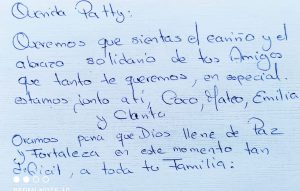 Querida Patty:
Queremos que sientas el cariño y el
abrazo solidario de tus Amigos
que tanto te queremos, en especial
estamos, junto a ti, Coco, Mateo, Emilia
y
Oramos para que Dios llene de Paz
y Fortaleza en este momento tan
dificil, a toda tu Familia.